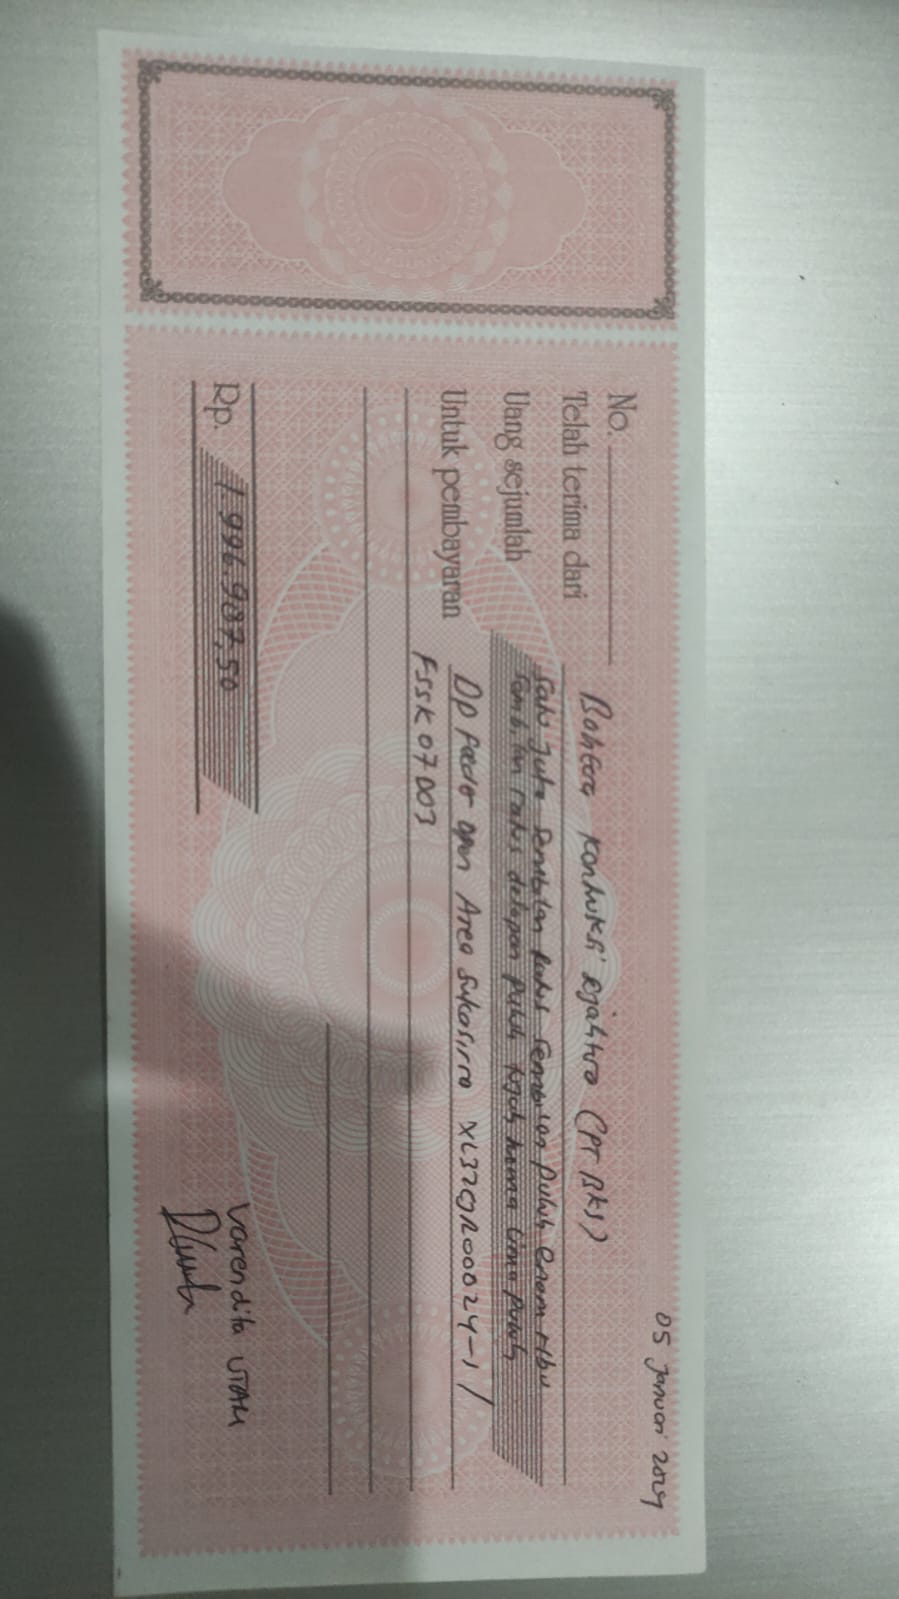 05 Januari 2024
No.
Telah terima dari Bahtera Kontruksi Sejahtra (PT BKS)
Uang sejumlah Satu Juta Sembilan Ratus Sembilan puluh enam ribu
Sembilan ratus delapan puluh tujuh koma lima puluh
Untuk pembayaran DP Area Sukosirno XL32 /
FSSK07003
Rp. 1.996.987,50
Varendita UTAMI